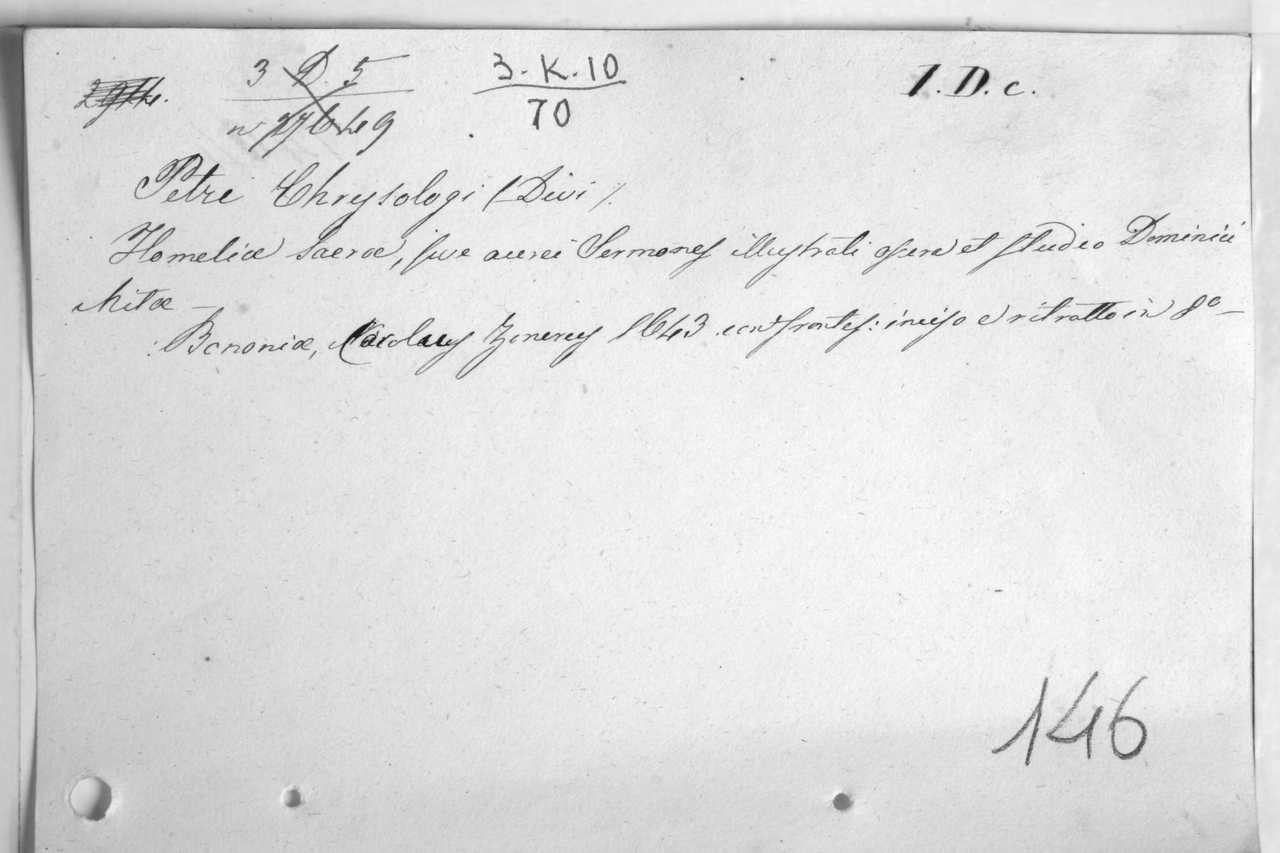 3 D. 5
3. K. 10
70
I. D. c.
Petri Chrysologi (Divi).
Homeliæ sacræ, sive aurei Sermones illustrati opera et studio Dominici
Mitæ –
Bononiæ, Nicolaus Zenerus 1643 con frontes: inciso e ritratto in 8º –
146